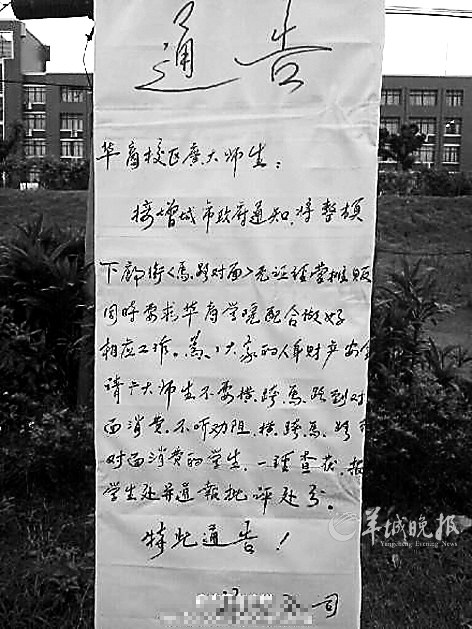 通告
华商校区广大师生：
接增城市政府通知，将整顿
下廊街<马路对面>无证经营摊贩
同时要求华商学院配合做好
相应工作。为了大家的人身财产安全
请广大师生不要横跨马路到对
面消费，不听劝阻，横跨马路
对面消费的学生，一经查获，报
学生处并通报批评处分。
特此通告！
司
羊城晚报
Yangcheng Evening News